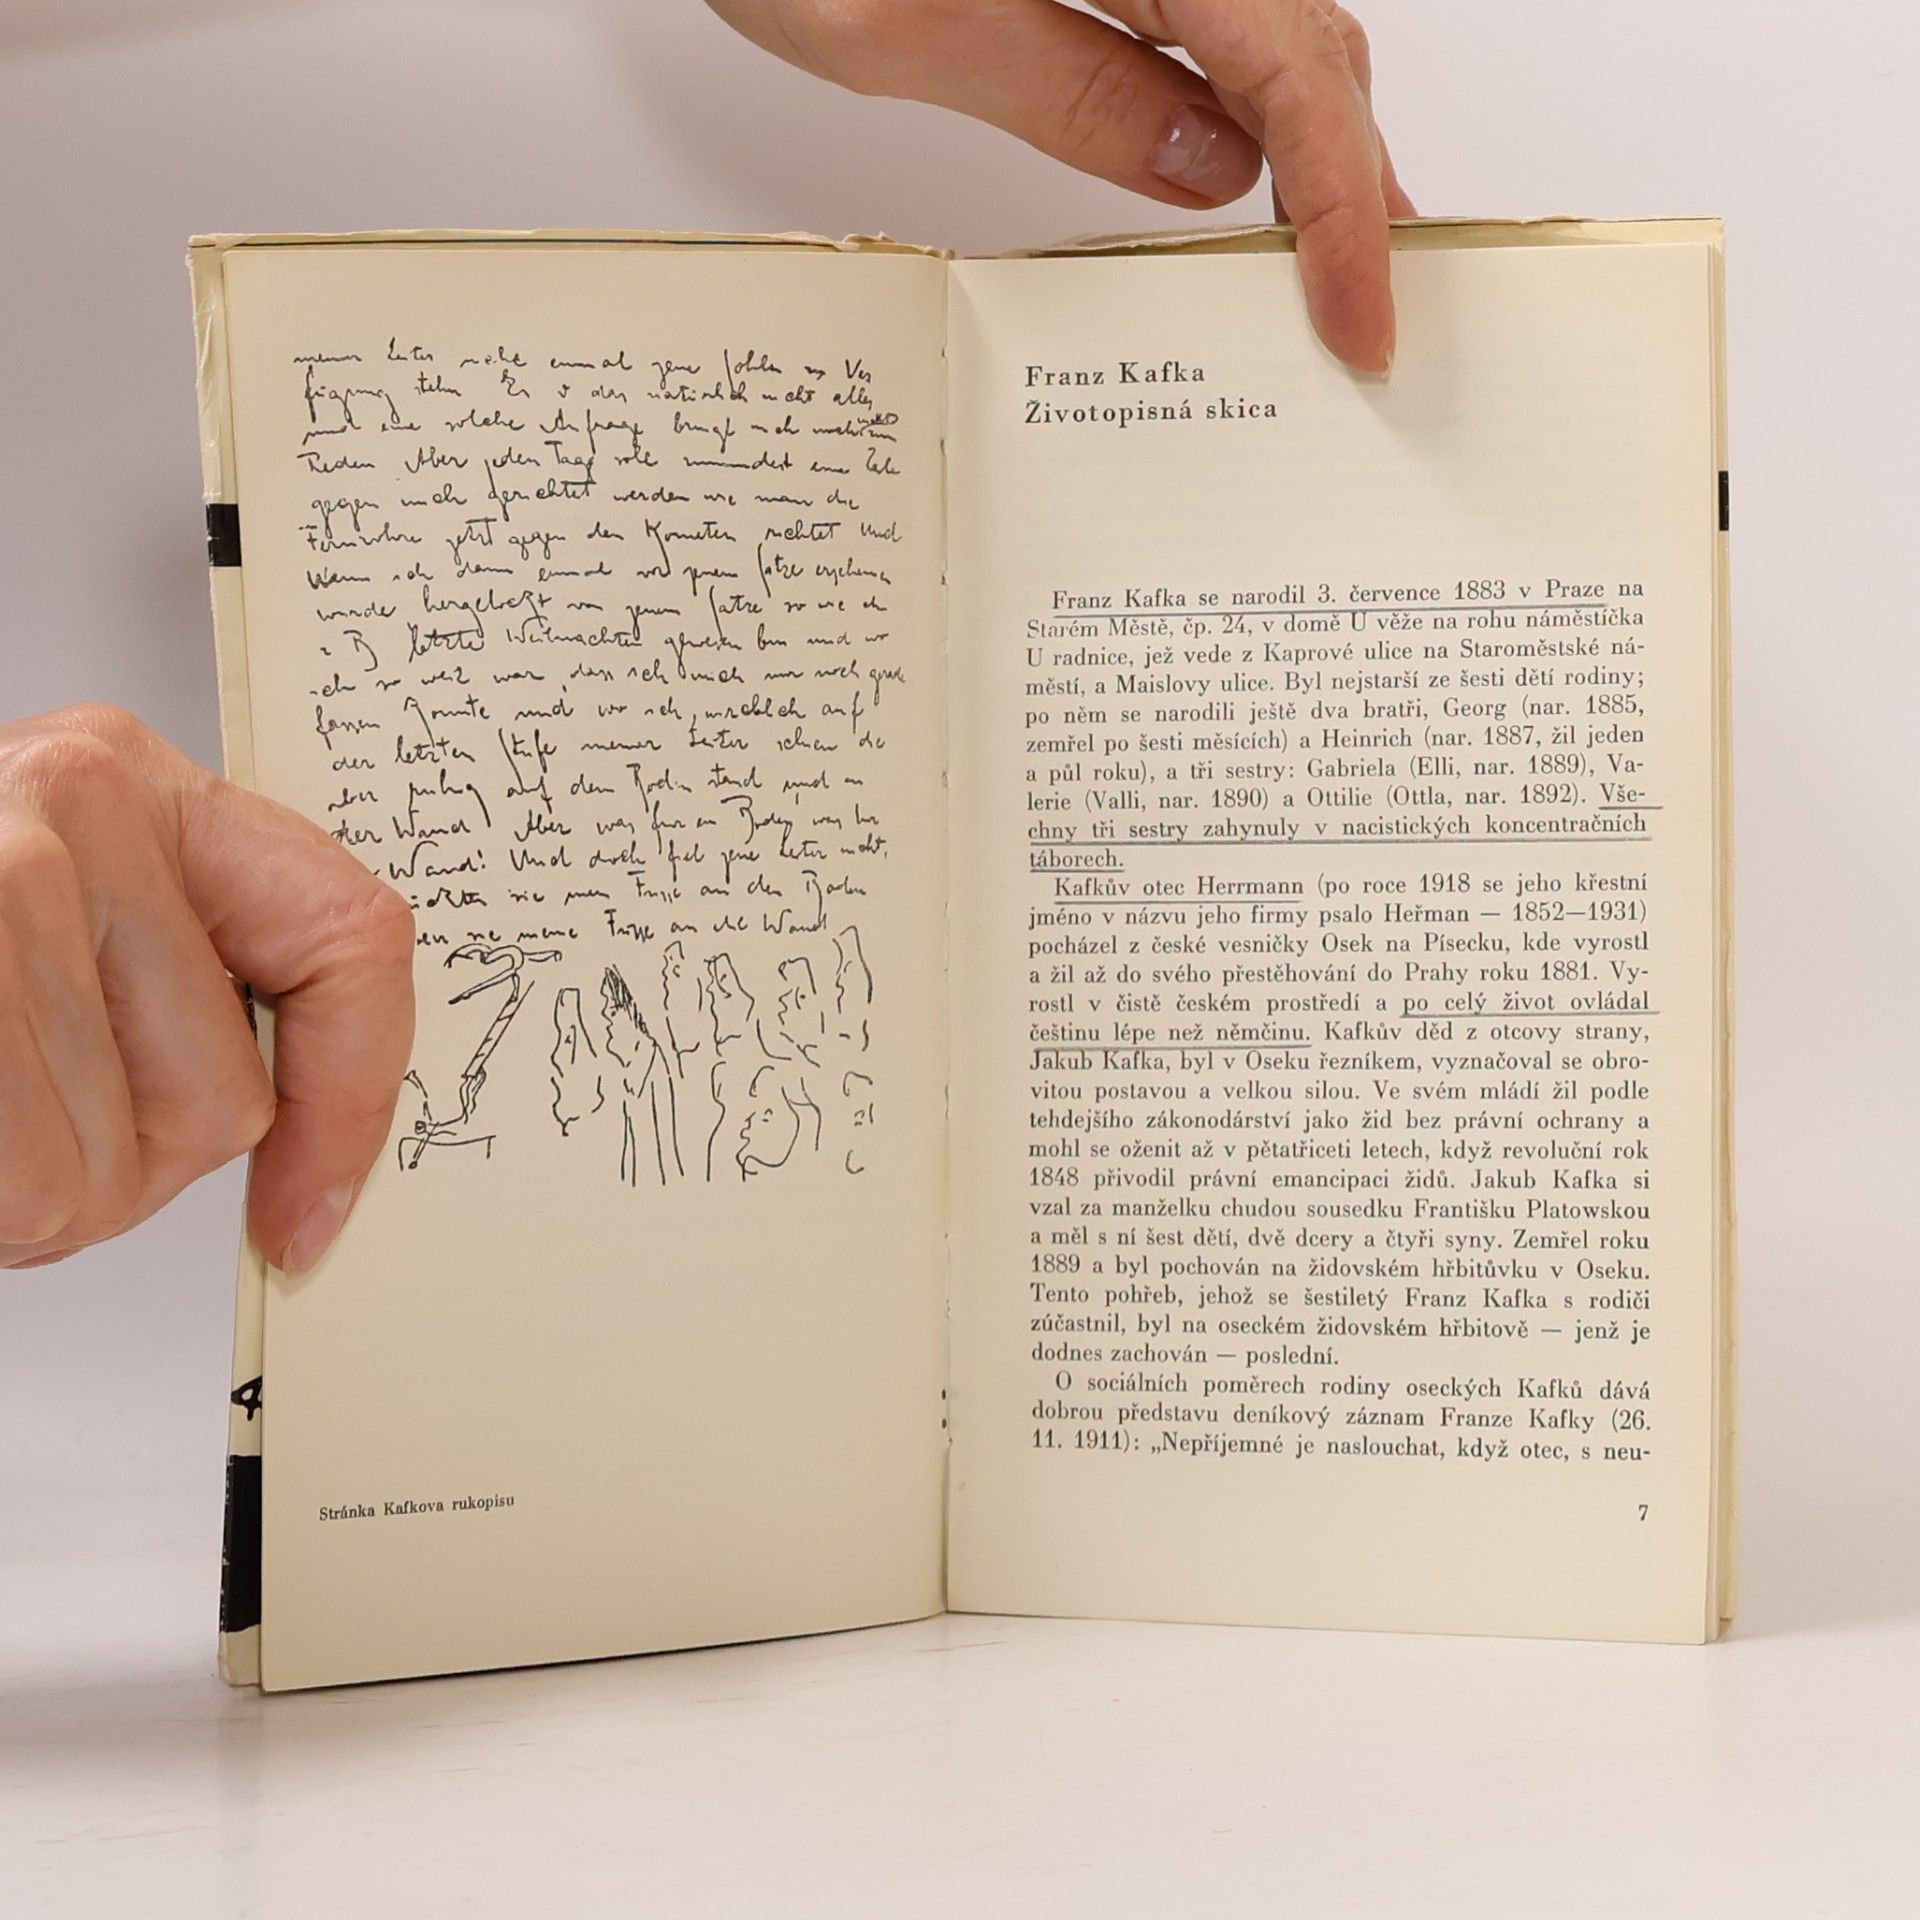 meiner Leiter nicht einmal jene Sohlen zur Ver
fügung stehn Es ist das natürlich nicht alles
und eine solche Anfrage bringt mich noch nicht zum
Reden Aber jeden Tag soll zumindest eine Zeile
gegen mich gerichtet werden wie man die
Fernrohre jetzt gegen den Kometen richtet Und
wenn ich dann einmal vor jenem Satze erscheinen
würde hergelockt von jenem Satze so wie ich
z B letzte Weihnachten gewesen bin und wo
ich so weit war dass ich mich nur noch gerade
fassen konnte und wo ich wirklich auf
der letzten Stufe meiner Leiter schien die
aber ruhig auf dem Boden stand und an
der Wand Aber was für ein Boden was für
Wand! Und doch fiel jene Leiter nicht,
sie meine Füsse an den Boden
sie meine Füsse an die Wand
Stránka Kafkova rukopisu
Franz Kafka
Životopisná skica
Franz Kafka se narodil 3. července 1883 v Praze na
Starém Městě, čp. 24, v domě U věže na rohu náměstíčka
U radnice, jež vede z Kaprové ulice na Staroměstské ná-
městí, a Maislovy ulice. Byl nejstarší ze šesti dětí rodiny;
po něm se narodili ještě dva bratři, Georg (nar. 1885,
zemřel po šesti měsících) a Heinrich (nar. 1887, žil jeden
a půl roku), a tři sestry: Gabriela (Elli, nar. 1889), Va-
lerie (Valli, nar. 1890) a Ottilie (Ottla, nar. 1892). Vše-
chny tři sestry zahynuly v nacistických koncentračních
táborech.
Kafkův otec Herrmann (po roce 1918 se jeho křestní
jméno v názvu jeho firmy psalo Heřman — 1852—1931)
pocházel z české vesničky Osek na Písecku, kde vyrostl
a žil až do svého přestěhování do Prahy roku 1881. Vy-
rostl v čistě českém prostředí a po celý život ovládal
češtinu lépe než němčinu. Kafkův děd z otcovy strany,
Jakub Kafka, byl v Oseku řezníkem, vyznačoval se obro-
vitou postavou a velkou silou. Ve svém mládí žil podle
tehdejšího zákonodárství jako žid bez právní ochrany a
mohl se oženit až v pětatřiceti letech, když revoluční rok
1848 přivodil právní emancipaci židů. Jakub Kafka si
vzal za manželku chudou sousedku Františku Platowskou
a měl s ní šest dětí, dvě dcery a čtyři syny. Zemřel roku
1889 a byl pochován na židovském hřbitůvku v Oseku.
Tento pohřeb, jehož se šestiletý Franz Kafka s rodiči
zúčastnil, byl na oseckém židovském hřbitově — jenž je
dodnes zachován — poslední.
O sociálních poměrech rodiny oseckých Kafků dává
dobrou představu deníkový záznam Franze Kafky (26.
11. 1911): „Nepříjemné je naslouchat, když otec, s neu-
7